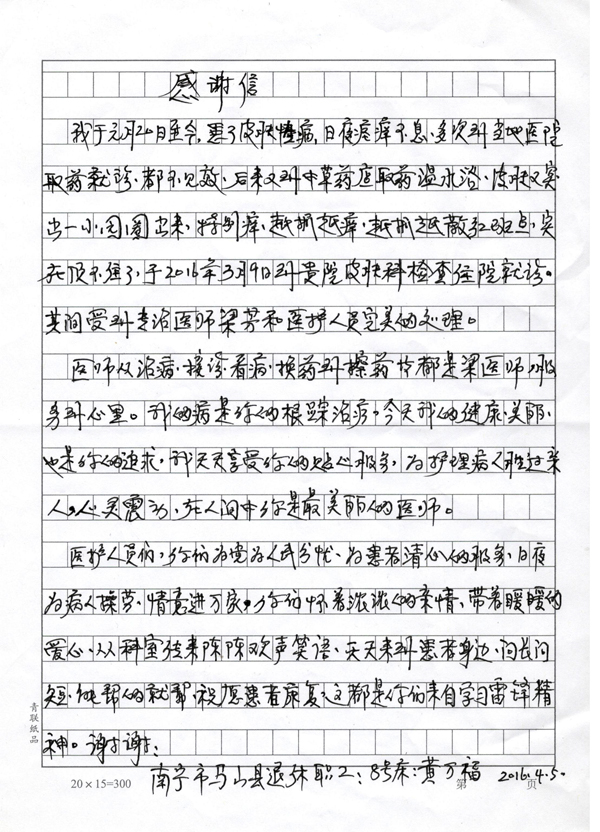 感谢信
我于元月20日至今,患了皮肤病,日夜瘙痒不息,多次到当地医院
取药就诊,都不见效,后来又到中草药店取药温水浴,皮肤又突
出一小园圈出来,特别痒,越抓越痒,越抓越散红班点,实
在顶不住了,于2016年3月9日到贵院皮肤科检查住院就诊。
其间受到专治医师梁芳和医护人员完美的处理。
医师从治病,接诊看病,换药到擦药片都是梁医师的服
务到心里。我的病是你们根踪治疗,今天我的健康,美丽,
也是你们的追求,我天天享受你们的贴心服务,为护理病人胜过亲
人,心灵震动,在人间中你是最美丽的医师。
医护人员们,你们为党为人民分忧,为患者清心的服务,日夜
为病人操劳,情意进万家,你们怀着浓浓的亲情,带着暖暖的
爱心,从科室传来阵阵欢声笑语,天天来到患者身边,问长问
短,能帮的就帮,祝愿患者康复,这都是你们来自学习雷锋精
神。谢谢:
南宁市马山县退休职工:8号床:黄万福 2016.4.5.
青联纸品
20×15=300 第 页